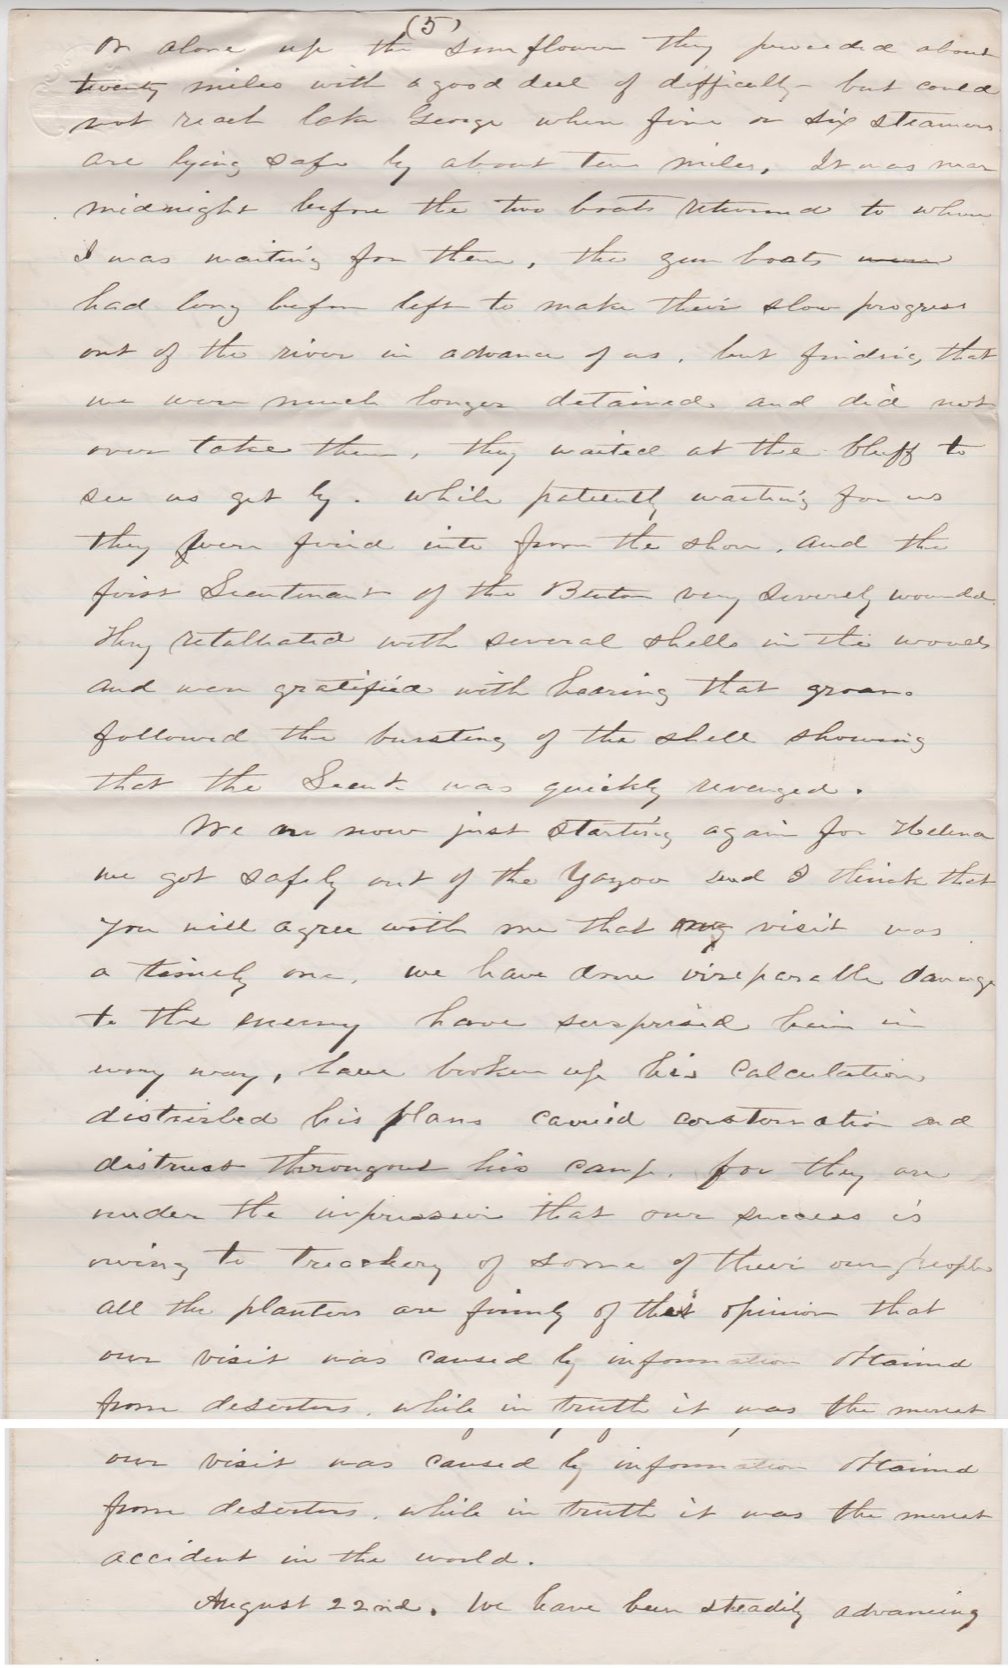 (5)
on alone up the Sunflower they proceeded about
twenty miles with a good deal of difficulty but could
not reach lake George when five or six steamers
are lying safe by about ten miles, It was near
midnight before the two boats returned to where
I was waiting for them, the gun boats were
had long before left to make their slow progress
out of the river in advance of us, but finding that
we were much longer detained and did not
over take them, they waited at the bluff to
see us get by. while patiently waiting for us
they were fired into from the shore, and the
first Lieutenant of the Benton very severely wounded.
they retaliated with several shells in the woods
and were gratified with hearing that groans
followed the bursting of the shell showing
that the Lieut. was quickly revenged.
We are now just starting again for Helena
we got safely out of the Yazoo and I think that
you will agree with me that my visit was
a timely one, we have done irreparable damage
to the enemy have surprised him in
every way, have broken up his calculations
disturbed his plans carried consternation and
distrust throughout his camp, for they are
under the impression that our success is
owing to treachery of some of their own people
all the planters are firmly of that opinion that
our visit was caused by information obtained
from deserters, while in truth it was the merest
our visit was caused by information obtained
from deserters, while in truth it was the merest
accident in the world.
August 22nd. We have been steadily advancing